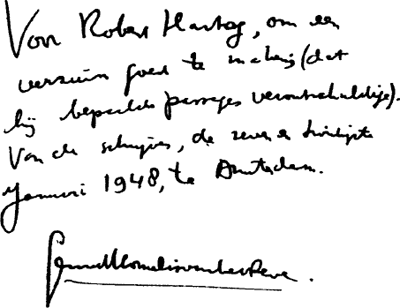 Voor Robert Hartog, om een
verzuim goed te maken (dat
hij bepaalde passages verontschuldige).
Van de schrijver, de zeven en twintigste
Januari 1948, te Amsterdam.
Gerard Kornelis van het Reve.